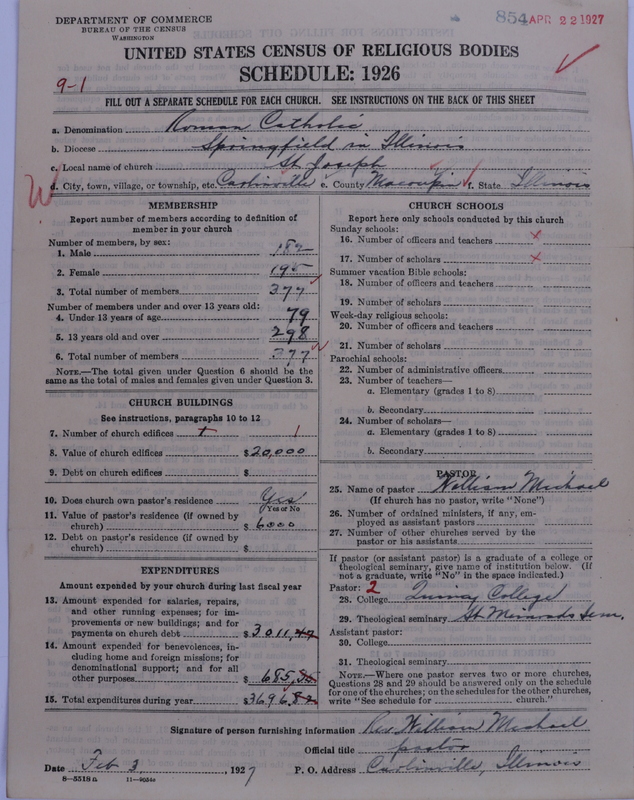 DEPARTMENT OF COMMERCE
BUREAU OF THE CENSUS
WASHINGTON
854 APR 22 1927
UNITED STATES CENSUS OF RELIGIOUS BODIES
SCHEDULE: 1926
9-1
FILL OUT A SEPARATE SCHEDULE FOR EACH CHURCH. SEE INSTRUCTIONS ON THE BACK OF THIS SHEET
a. Denomination Roman Catholic
b. Diocese Springfield in Illinois
c. Local name of church St. Joseph
d. City, town, village, or township, etc. Carlinville e. County Macoupin f. State Illinois
W
MEMBERSHIP
Report number of members according to definition of
member in your church
Number of members, by sex:
1. Male 182
2. Female 195
3. Total number of members 377
Number of members under and over 13 years old:
4. Under 13 years of age 79
5. 13 years old and over 298
6. Total number of members 377
NOTE.—The total given under Question 6 should be
the same as the total of males and females given under Question 3.
CHURCH BUILDINGS
See instructions, paragraphs 10 to 12
7. Number of church edifices 1
8. Value of church edifices $20,000
9. Debt on church edifices $
10. Does church own pastor's residence Yes
Yes or No
11. Value of pastor's residence (if owned by
church) $ 6000
12. Debt on pastor's residence (if owned by
church) $
EXPENDITURES
Amount expended by your church during last fiscal year
13. Amount expended for salaries, repairs,
and other running expenses; for im-
provements or new buildings; and for
payments on church debt $3011,
14. Amount expended for benevolences, in-
cluding home and foreign missions; for
denominational support; and for all
other purposes $ 685,
15. Total expenditures during year $3696,
CHURCH SCHOOLS
Report here only schools conducted by this church
Sunday schools:
16. Number of officers and teachers x
17. Number of scholars x
Summer vacation Bible schools:
18. Number of officers and teachers
19. Number of scholars
Week-day religious schools:
20. Number of officers and teachers
21. Number of scholars
Parochial schools:
22. Number of administrative officers
23. Number of teachers—
a. Elementary (grades 1 to 8)
b. Secondary
24. Number of scholars—
a. Elementary (grades 1 to 8)
b. Secondary
PASTOR
25. Name of pastor William Michael
(If church has no pastor, write "None")
26. Number of ordained ministers, if any, em-
ployed as assistant pastors
27. Number of other churches served by the
pastor or his assistants
If pastor (or assistant pastor) is a graduate of a college or
theological seminary, give name of institution below. (If
not a graduate, write "No" in the space indicated.)
Pastor: 2
28. College Quincy College
29. Theological seminary St. Meinrads Sem.
Assistant pastor:
30. College
31. Theological seminary
NOTE.—Where one pastor serves two or more churches,
Questions 28 and 29 should be answered only on the schedule
for one of the churches; on the schedules for the other churches,
write "See schedule for church."
Signature of person furnishing information Rev. William Michael
Official title pastor
Date Feb 3, 1927 P. O. Address Carlinville, Illinois
8—5518 a